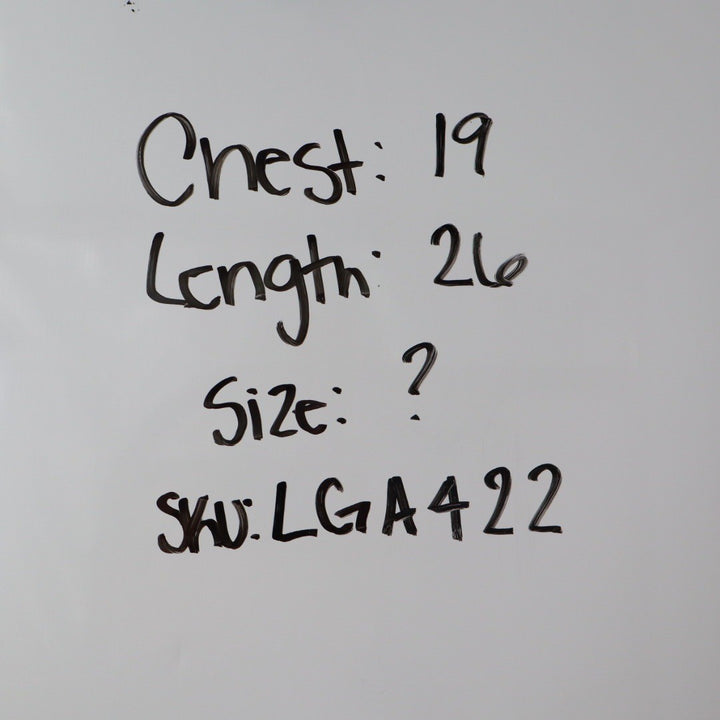 Chest: 19
Length: 26
Size: ?
SKU: LGA422